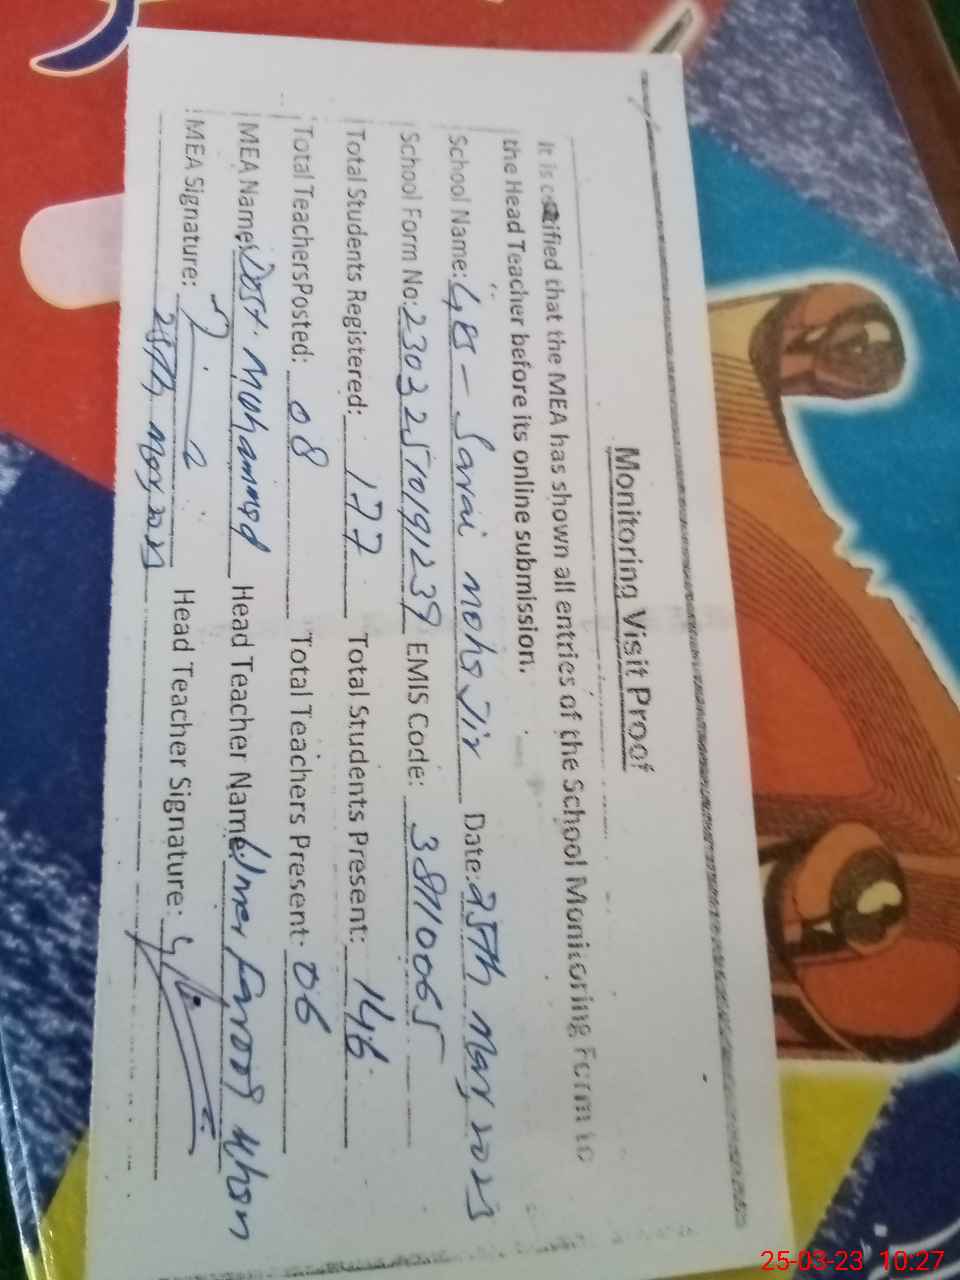 Monitoring Visit Proof
It is certified that the MEA has shown all entries of the School Monitoring Form to
the Head Teacher before its online submission.
School Name: GPS - Sarai Date: 25th Mar, 2023
School Form No: 23032510191239 EMIS Code: 38110065
Total Students Registered: 177 Total Students Present: 146
Total TeachersPosted: 08 Total Teachers Present: 06
MEA Name: Dost Muhammad Head Teacher Name: Umer Farooq Khan
MEA Signature: Head Teacher Signature:
25th Mar, 2023
25-03-23 10:27